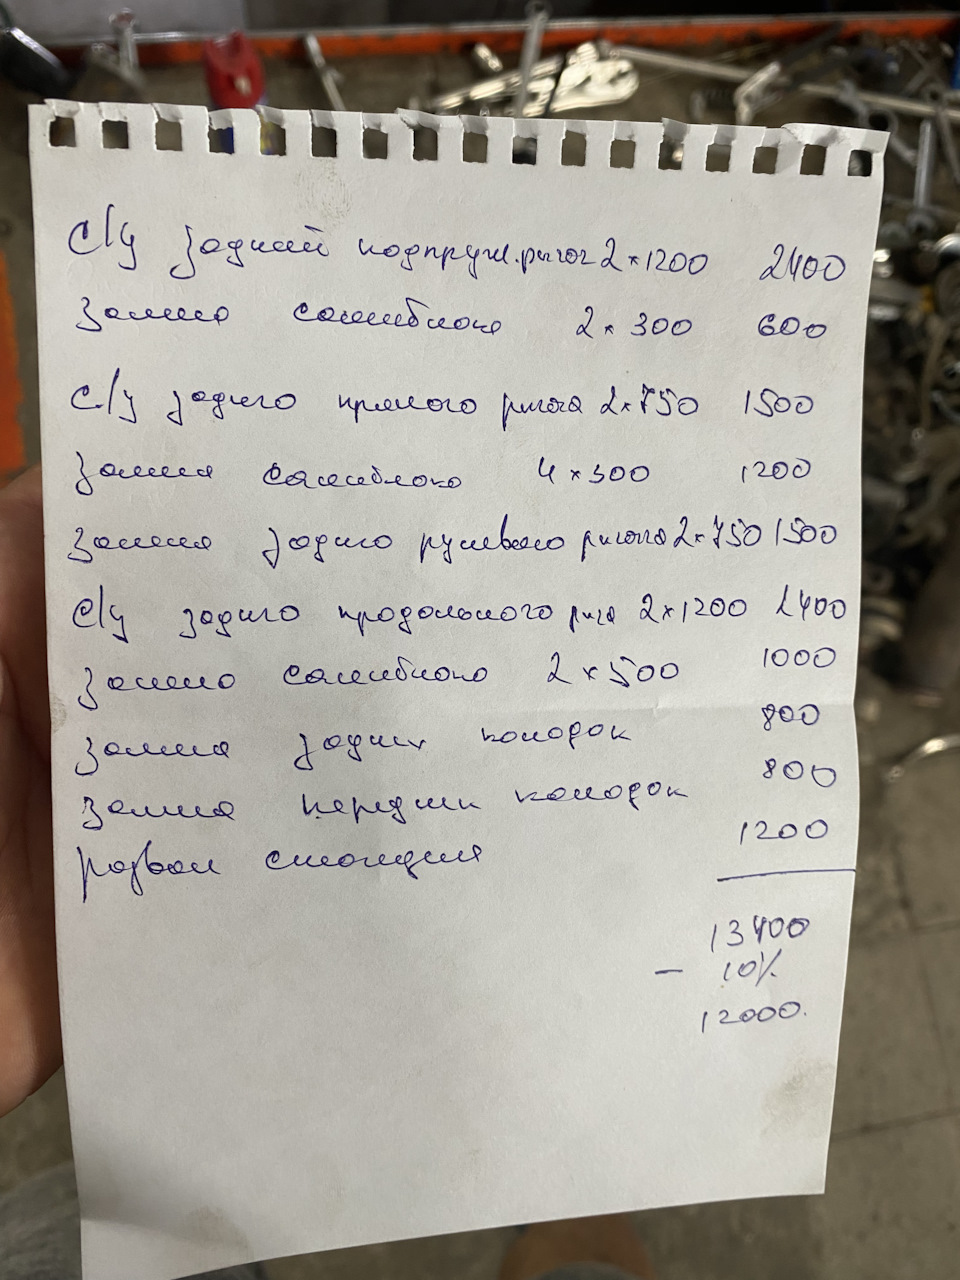 с/у задний подпруж. рычаг 2×1200 2400
замена сайлеблока 2×300 600
с/у заднего прямого рычага 2×750 1500
замена сайлеблока 4×300 1200
замена заднего рулевого рычага 2×750 1500
с/у заднего продольного рыча 2×1200 2400
замена сайлеблока 2×500 1000
замена задних колодок 800
замена передних колодок 800
развал схождения 1200
13400
– 10%
12000.